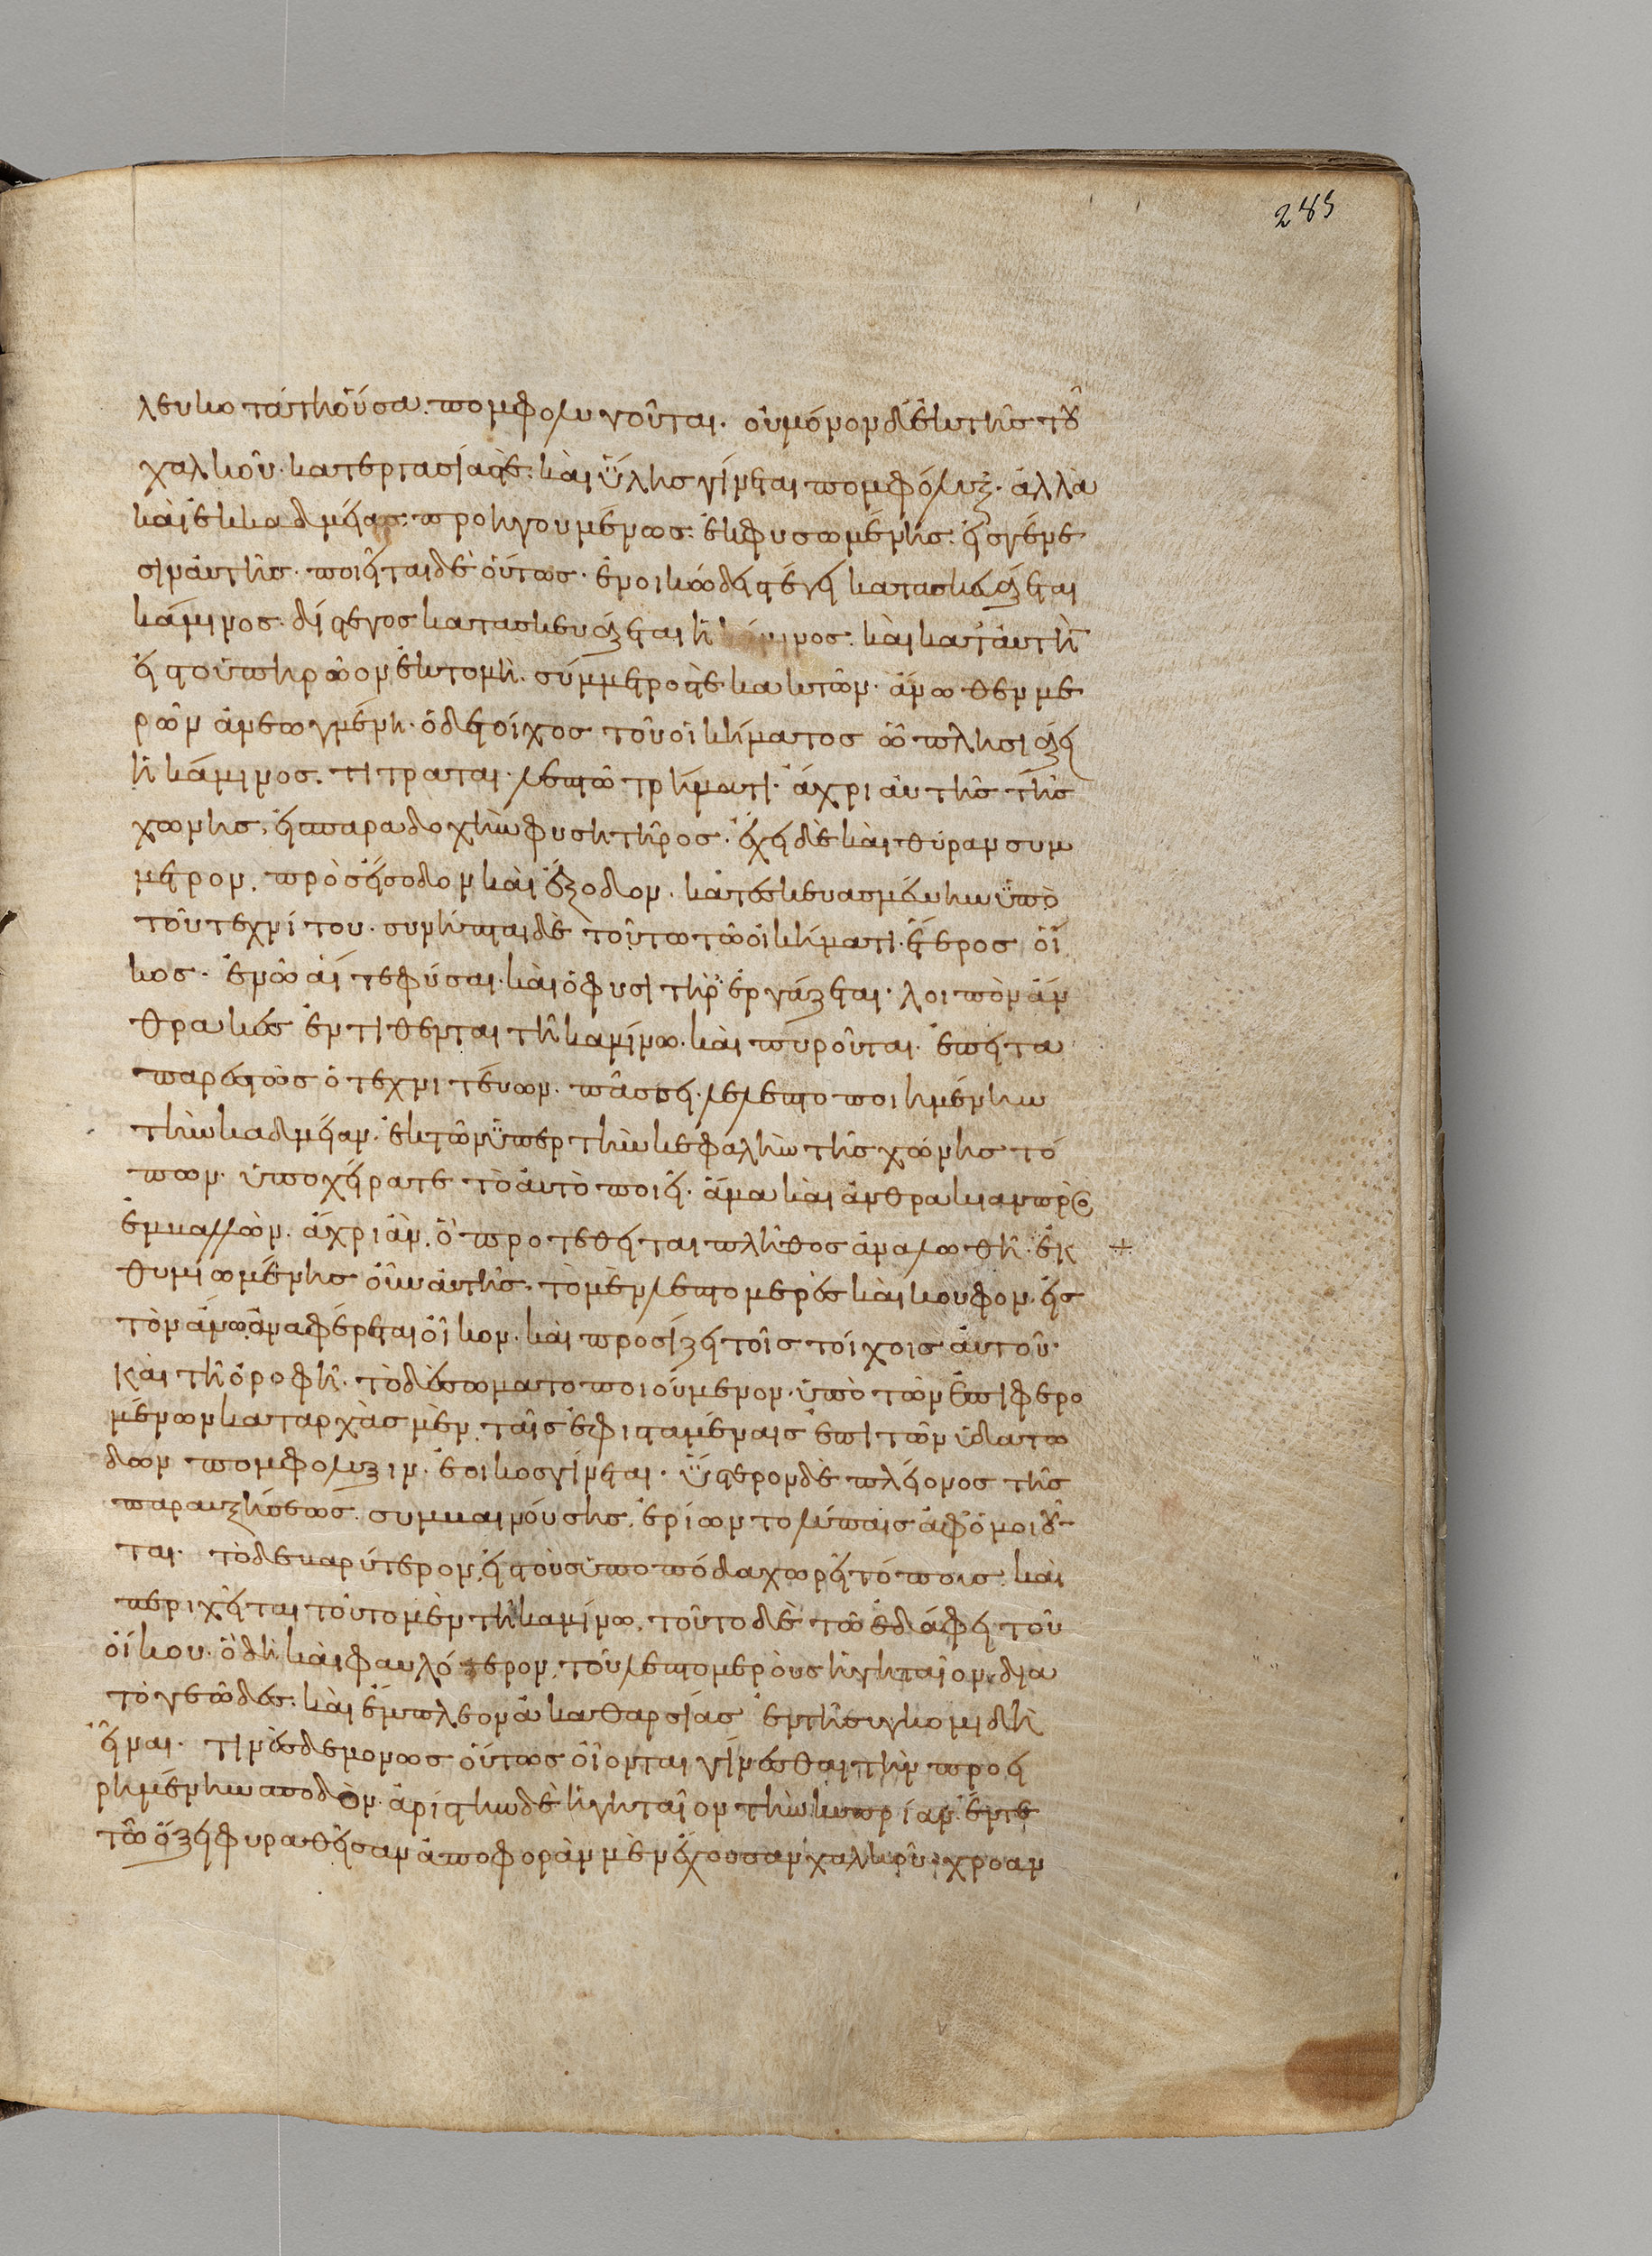 285
λευκοτάτη οὖσα. πομφολυγοῦται. οὐ μόνον δ' ἐκ τῆς τοῦ
χαλκοῦ. κατεργασίας τε. καὶ ὕλης γίνεται πομφόλυξ. ἀλλὰ
καὶ ἐκ καδμείας. προηγουμένως. ἐκφυσωμένης. εἰς γένε
σιν αὐτῆς. ποιεῖται δὲ οὕτως. ἐν οἴκω διστέγει κατασκευάζεται
κάμινος. δίστεγος κατασκευάζεται ἡ κάμινος. καὶ κατ' αὐτὴ
εἰς τὸ ὑπηρῶον ἐκτομὴ. σύμμετρός τε. κακτῶν. ἄνωθεν με
ρῶν ἀνεωγμένη. ὁ δὲ τοίχος τοῦ οἰκήματος ὧ πλησιάζει
ἡ κάμινος. τίτραται. λεπτῶ τρήματι. ἄχρι αὐτῆς τῆς
χώνης, εἰς παραδοχὴν φυσητῆρος. ἔχει δὲ καὶ θύραν συμ
μετρον. πρὸς εἴσοδον καὶ ἔξοδον. κατεσκευασμένην ὑπὸ
τοῦ τεχνίτου. συνῆπται δὲ τούτω τῶ οἰκήματι. ἕτερος οἶ
κος. ἐν ῶ αἵ τε φύσαι. καὶ ὁ φυσητὴρ ἐργάζεται. λοιπὸν ἄν
θρακες ἐντίθενται τῆ καμίνω. καὶ πυροῦνται. ἔπειτα
παρεστὼς ὁ τεχνιτεύων. πάσσει. λελεπτοποιημένην
τὴν καδμείαν. ἐκ τῶν ὑπὲρ τὴν κεφαλὴν τῆς χώνης τό
πων. ὑποχείρ ἅτε τὸ αὐτὸ ποιεῖ. ἅμα καὶ ἀνθρακιὰν προς
εμβαλλὼν. ἄχρι ἂν. ὃ προτεθεῖται πλῆθος ἀναλωθῆ. ἐκ
θυμιωμένης οὖν αὐτῆς. τὸ μὲν λεπτομερὲς καὶ κοῦφον. εἰς
τὸν ἄνω ἀναφέρεται οἶκον. καὶ προσίζει τοῖς τοίχοις αὐτοῦ.
καὶ τῆ ὀροφῆ. τὸ δὲ σωματοποιούμενον. ὑπὸ τῶν ἐπιφερο
μένων καταρχὰς μὲν. ταῖς ἐφισταμέναις ἐπὶ τῶν ὑδατω
δῶν πομφόλυξιν. ἐοικὸς γίνεται. ὕστερον δὲ πλείονος τῆς
παραυξήσεως. συμβαινούσης. ἐρίων τολύπαις ἀφομοιοῦ
ται. τὸ δὲ βαρύτερον, εἰς τοὺς ὑποπόδα χωρεῖ τόποις. καὶ
περιχεῖται τοῦτο μὲν τῆ καμίνω. τοῦτο δὲ τῶ ἐδάφει τοῦ
οἴκου. ὃ δὴ καὶ φαυλότερον, τοῦ λεπτομεροῦς ἡγηταῖον. δια
τὸ γεῶδες. καὶ ἔμπλεον ἀκαθαρσίας ἐν τῆ συγκομιδῆ
εἶναι. τινὲς δὲ μόνως οὕτως οἴονται γίνεσθαι τὴν προει
ρημένην σποδὸν. ἀρίστην δὲ ἡγηταῖον τὴν κυπρίαν. ἔντε
τῶ ὄξει φυραθεῖσαν ἀποφορὰν μὲν ἔχουσαν χαλκοῦ, χρόαν